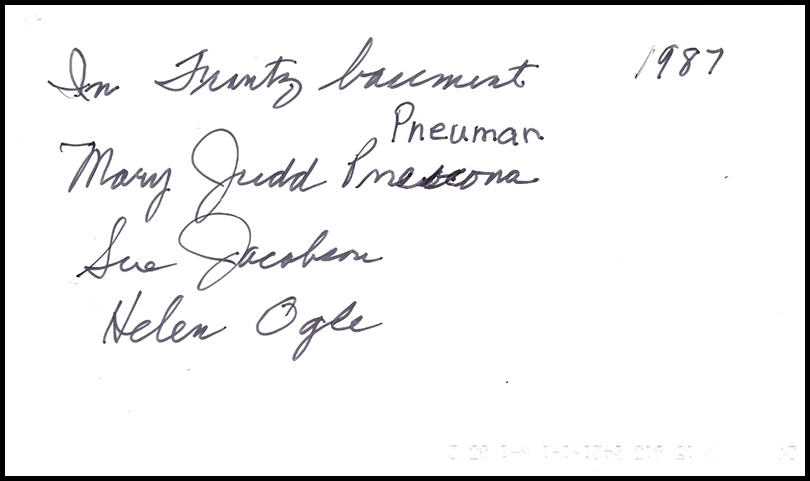 In Frantz basement 1987
Pneuman
Mary Judd
Sue Jacobson
Helen Ogle